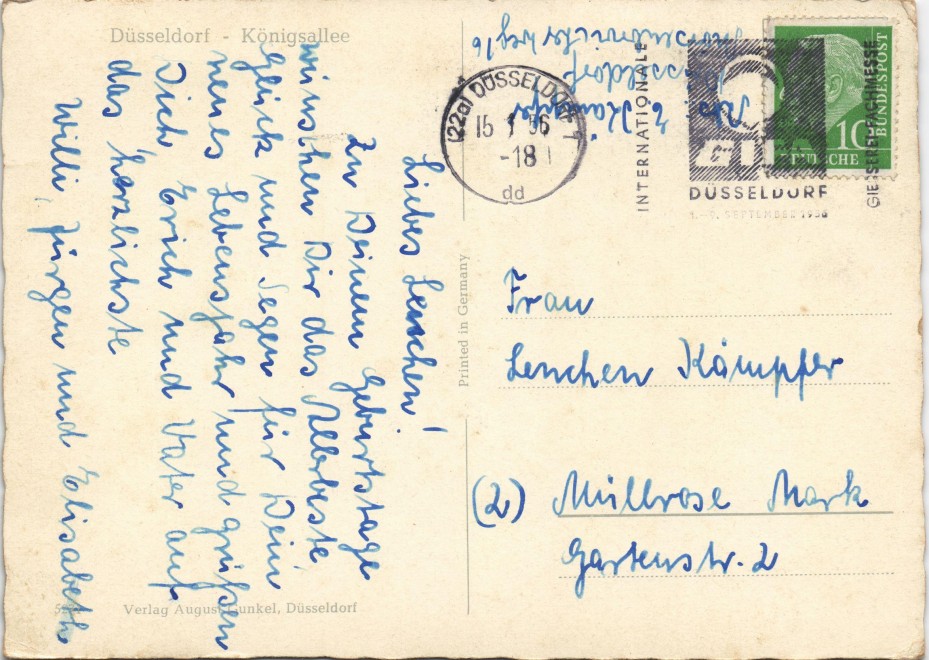 Düsseldorf - Königsallee
Liebes Lenchen!
Zu Deinem Geburtstage
wünschen Dir das Allerbeste
Glück und Segen für Dein
neues Lebensjahr und grüßen
Dich, Erich und Vater auf
das herzlichste
Willi, Jürgen und Elisabeth
Verlag August Gunkel, Düsseldorf
Printed in Germany
Abs. E. Kämpfer
Düsseldorf
(22a) DÜSSELDORF
15 56
-18
dd
INTERNATIONALE
GIFA
DÜSSELDORF
1.-9. SEPTEMBER 1956
GIESSEREIFACHMESSE
10
DEUTSCHE
BUNDESPOST
Frau
Lenchen Kämpfer
(2) Müllrose Mark
Gartenstr. 2